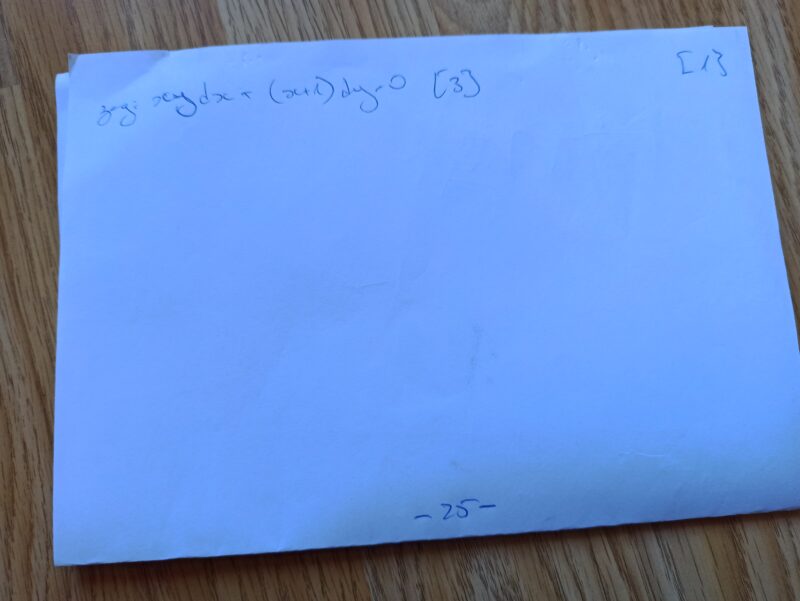 z.g: xy dx + (x+1) dy = 0 [3]
[1]
- 25 -